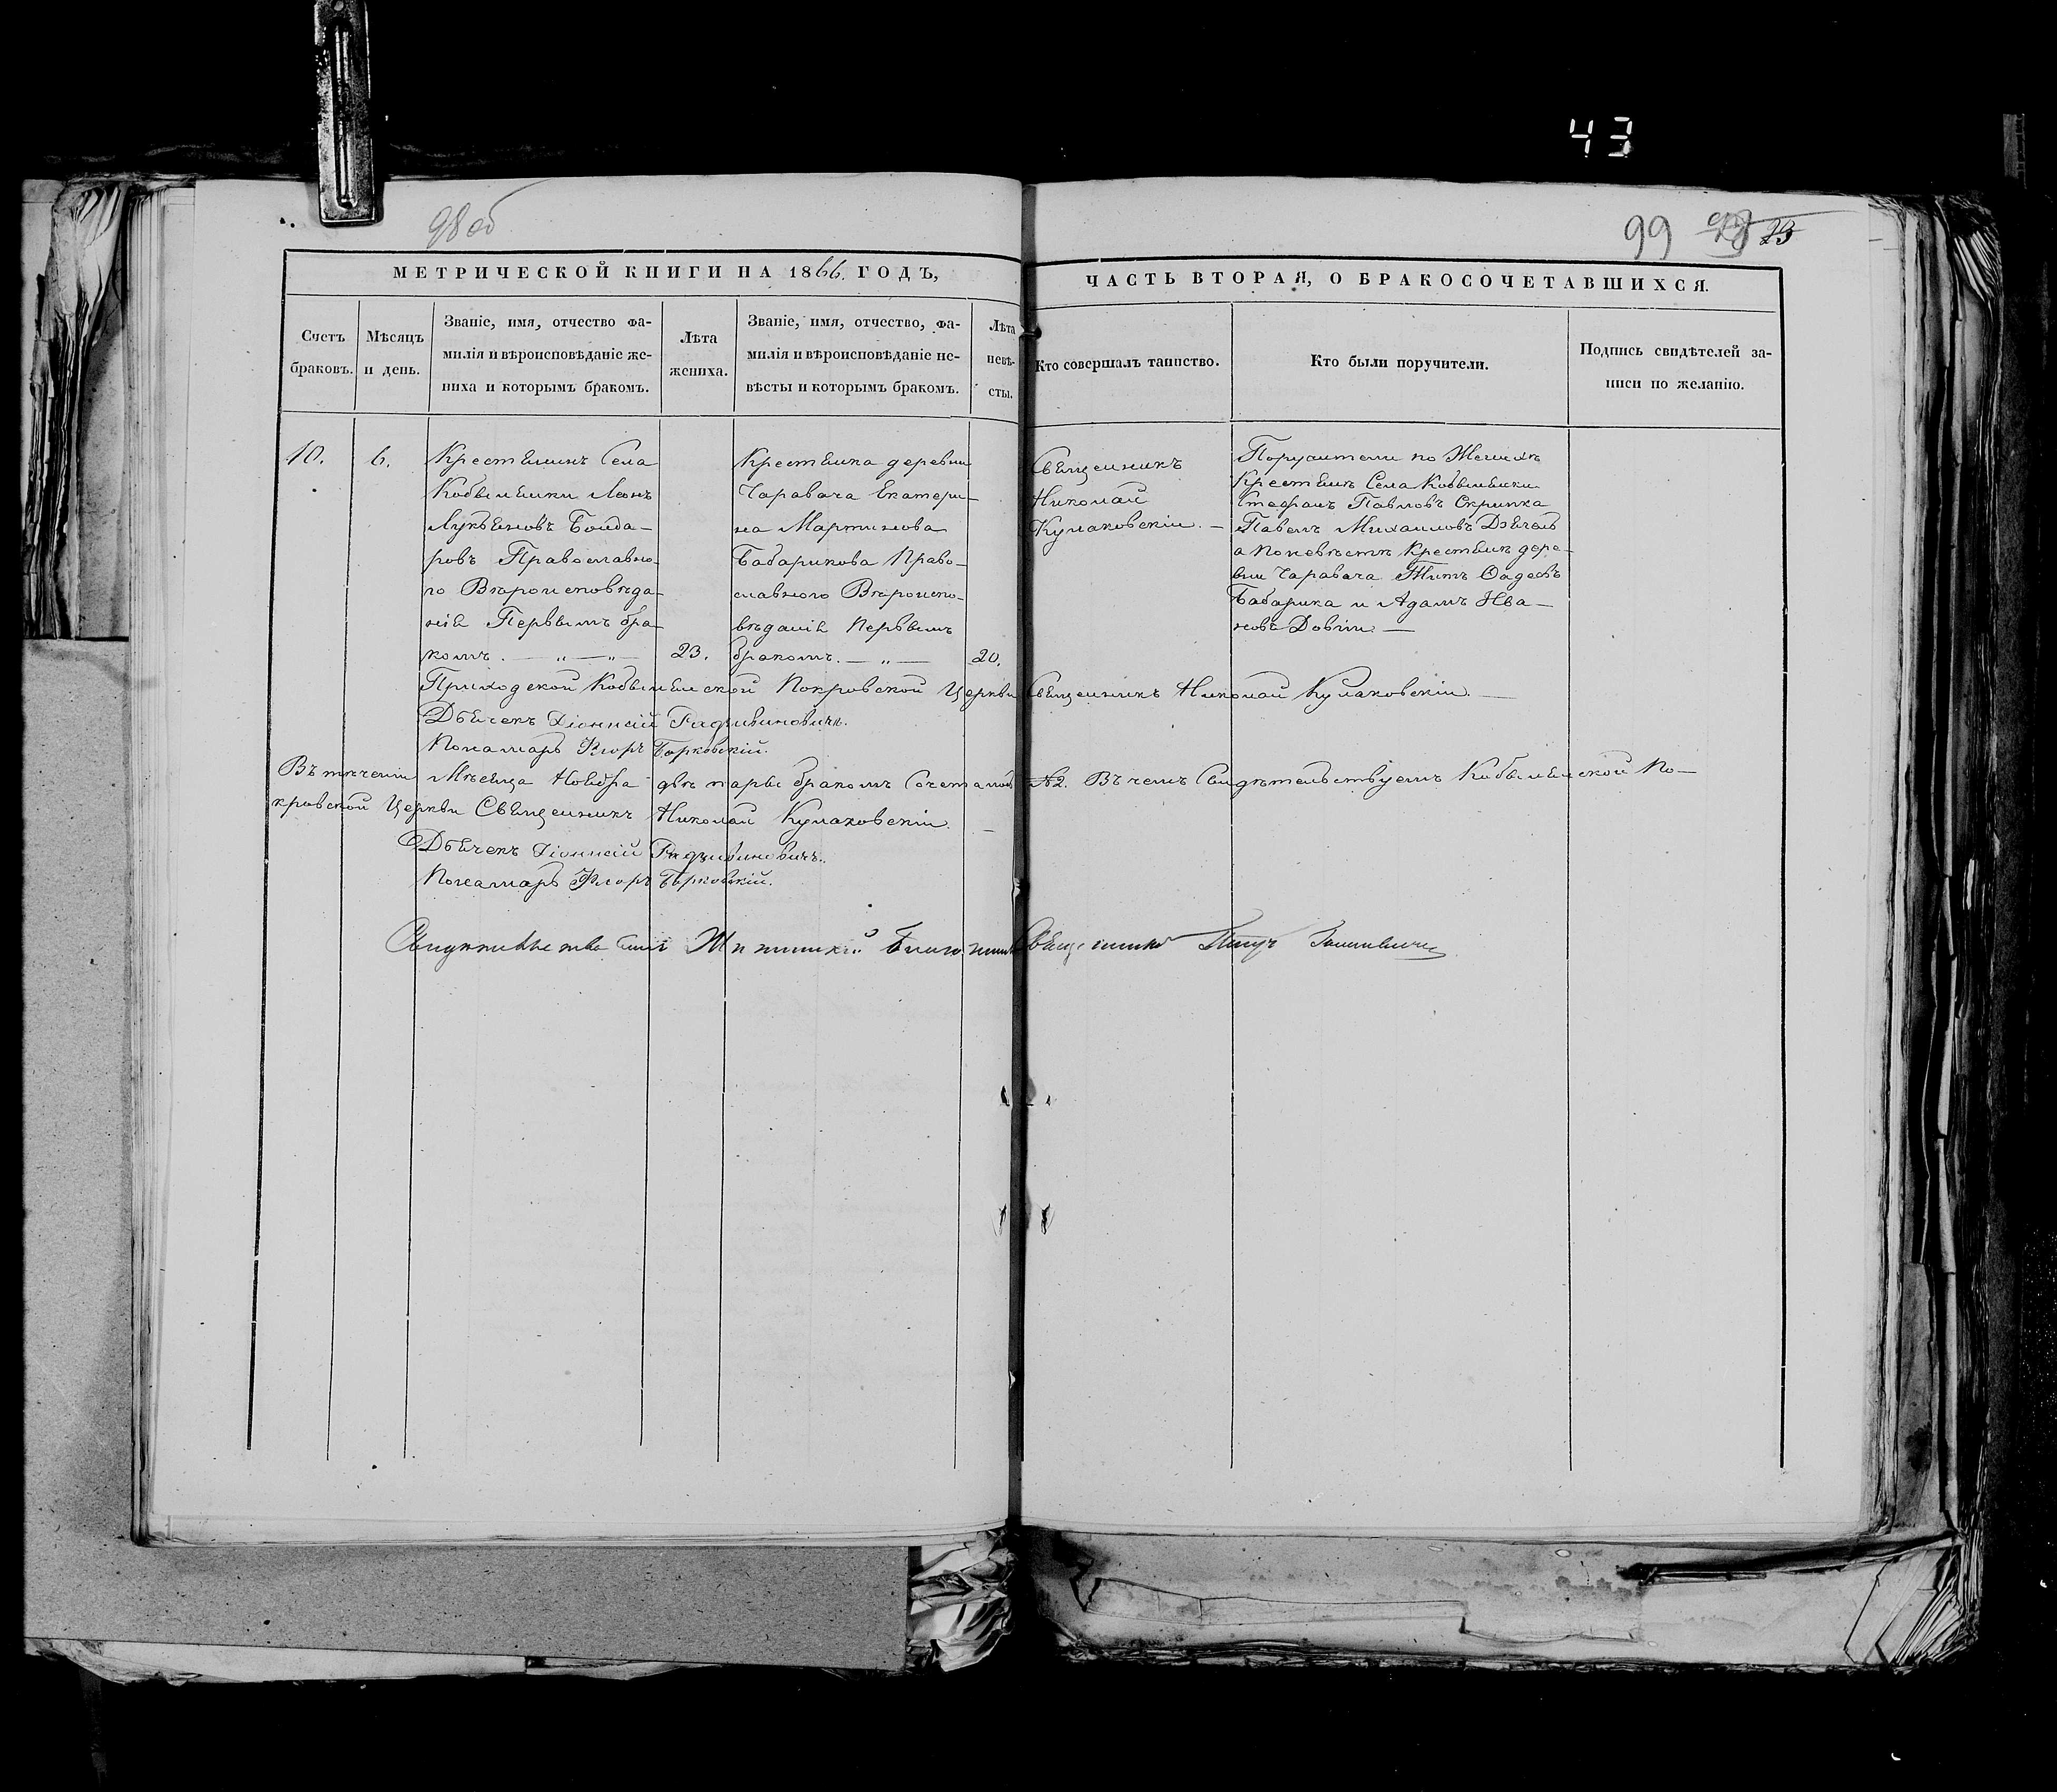 43
98 об
99 23
МЕТРИЧЕСКОЙ КНИГИ НА 1866. ГОДЪ,
ЧАСТЬ ВТОРАЯ, О БРАКОСОЧЕТАВШИХСЯ.
Счетъ
браковъ.
Мѣсяцъ
и день.
Званіе, имя, отчество фа-
милія и вѣроисповѣданіе же-
ниха и которымъ бракомъ.
Лѣта
жениха.
Званіе, имя, отчество, фа-
милія и вѣроисповѣданіе не-
вѣсты и которымъ бракомъ.
Лѣта
невѣ-
сты.
Кто совершалъ таинство.
Кто были поручители.
Подпись свидѣтелей за-
писи по желанію.
10.
6.
Крестьянинъ Села
Кобыльники Леонъ
Лукьяновъ Бонда-
ровъ Православно-
го Вѣроисповѣда-
нія Первымъ бра-
комъ. — „ — „ —
23.
Крестьянка деревни
Чаравача Екатери-
на Мартинова
Бабарикова Право-
славного Вѣроиспо-
вѣданія Первымъ
бракомъ. — „ —
20.
Священникъ
Николай
Кулаковскій. —
Поручители по Женихѣ
Крестьянѣ Села Кобыльники
Стефанъ Павловъ Скрипка
Павелъ Михаиловъ
а По невѣстѣ Крестьянѣ дере-
вни Чаравача Титъ
Бабарика и Адамъ Ива-
новъ —
Приходской Кобыльникской Покровской Церкви Священникъ Николай Кулаковскій. —
Дьячекъ Діонисій Радзивиновичъ.
Пономарь Флоръ Борковскій.
Въ теченіи Мѣсяца Ноября двѣ пары бракомъ Сочетались №2. Въ чемъ Свидѣтельствуемъ Кобыльникской По-
кровской Церкви Священникъ Николай Кулаковскій. —
Дьячекъ Діонисій Радзивиновичъ.
Пономарь Флоръ Борковскій.
Священникъ